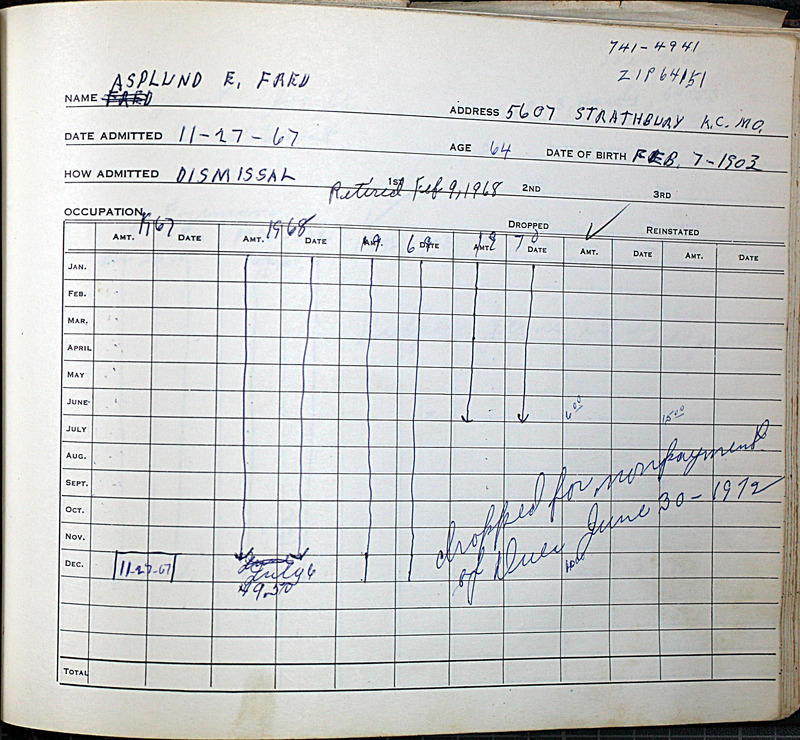 741-4941
ZIP 64151
ASPLUND E. FRED
NAME FRED
ADDRESS 5607 STRATHBURY K.C. MO.
DATE ADMITTED 11-27-67
AGE 64 DATE OF BIRTH FEB. 7-1903
HOW ADMITTED DISMISSAL
1ST 2ND 3RD
Retired Feb 9, 1968
OCCUPATION
DROPPED REINSTATED
1967 1968 19 69 19 70
AMT. DATE AMT. DATE AMT. DATE AMT. DATE AMT. DATE AMT. DATE
JAN.
FEB.
MAR.
APRIL
MAY
JUNE 6.00 15.00
JULY
AUG.
SEPT.
OCT.
NOV.
DEC. 11-27-67
July 6
49.50
dropped for nonpayment
of Dues June 30-1972
TOTAL